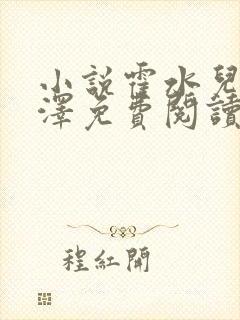 小說霍水兒
澤免費閱讀
程紅開